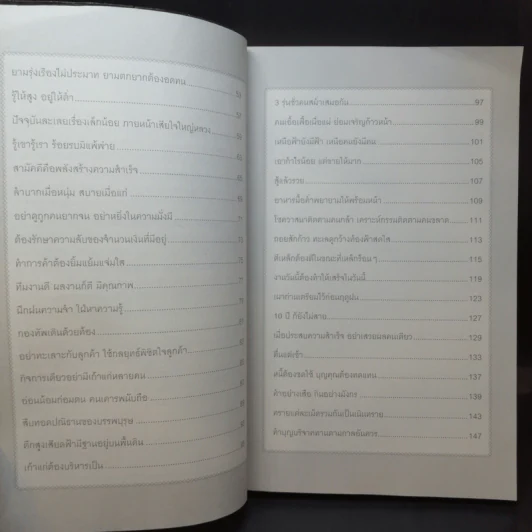 ยามรุ่งเรืองไม่ประมาท ยามตกยากต้องอดทน
รู้ให้สูง อยู่ให้ต่ำ
ปัจจุบันละเลยเรื่องเล็กน้อย ภายหน้าเสียใจใหญ่หลวง
รู้เขารู้เรา ร้อยรบมิแพ้พ่าย
สามัคคีคือพลังสร้างความสำเร็จ
ลำบากเมื่อหนุ่ม สบายเมื่อแก่
อย่าดูถูกคนยากจน อย่าหยิ่งในความมั่งมี
ต้องรักษาความลับของจำนวนเงินที่มีอยู่
ค้าการค้าต้องยิ้มแย้มแจ่มใส 75
ทีมงานดี ผลงานก็ดี มีคุณภาพ
ฝึกฝนความจำ ใฝ่หาความรู้
กองทัพเดินด้วยท้อง
อย่าทะเลาะกับลูกค้า ใช้กลยุทธ์พิชิตใจลูกค้า
กิจการเดียวอย่ามีเถ้าแก่หลายคน
อ่อนน้อมถ่อมตน คนเคารพนับถือ
สืบทอดปณิธานของบรรพบุรุษ
ตึกสูงเสียดฟ้ามีฐานอยู่บนพื้นดิน
เถ้าแก่ต้องบริหารเป็น
3 รุ่นชั่วคนสม่ำเสมอกัน 97
คนเอื้อเฟื้อเผื่อแผ่ ย่อมเจริญก้าวหน้า 99
เหนือฟ้ายังมีฟ้า เหนือคนยังมีคน 101
เอากำไรน้อย แต่ขายให้มาก 105
สู้แล้วรวย 107
อาหารมื้อค่ำพยายามได้พร้อมหน้า 109
โชควาสนาติดตามคนกล้า เคราะห์กรรมติดตามคนขลาด 111
ถอยสักก้าว ทะเลดูกว้างท้องฟ้าสดใส 113
ตีเหล็กต้องตีในขณะที่เหล็กร้อน ๆ 115
งานวันนี้ต้องทำให้เสร็จในวันนี้ 119
เผาถ่านเตรียมไว้ก่อนฤดูฝน 123
10 ปี ก็ยังไม่สาย 127
เมื่อประสบความสำเร็จ อย่าเสวยผลคนเดียว 129
ตื่นแต่เช้า 133
หนี้ต้องชดใช้ บุญคุณต้องทดแทน 137
ค้าอย่างเสือ กินอย่างมังกร 139
ทรายแต่ละเม็ดรวมกันเป็นเนินทราย 143
ทำบุญบริจาคทานตามกาลอันควร 147